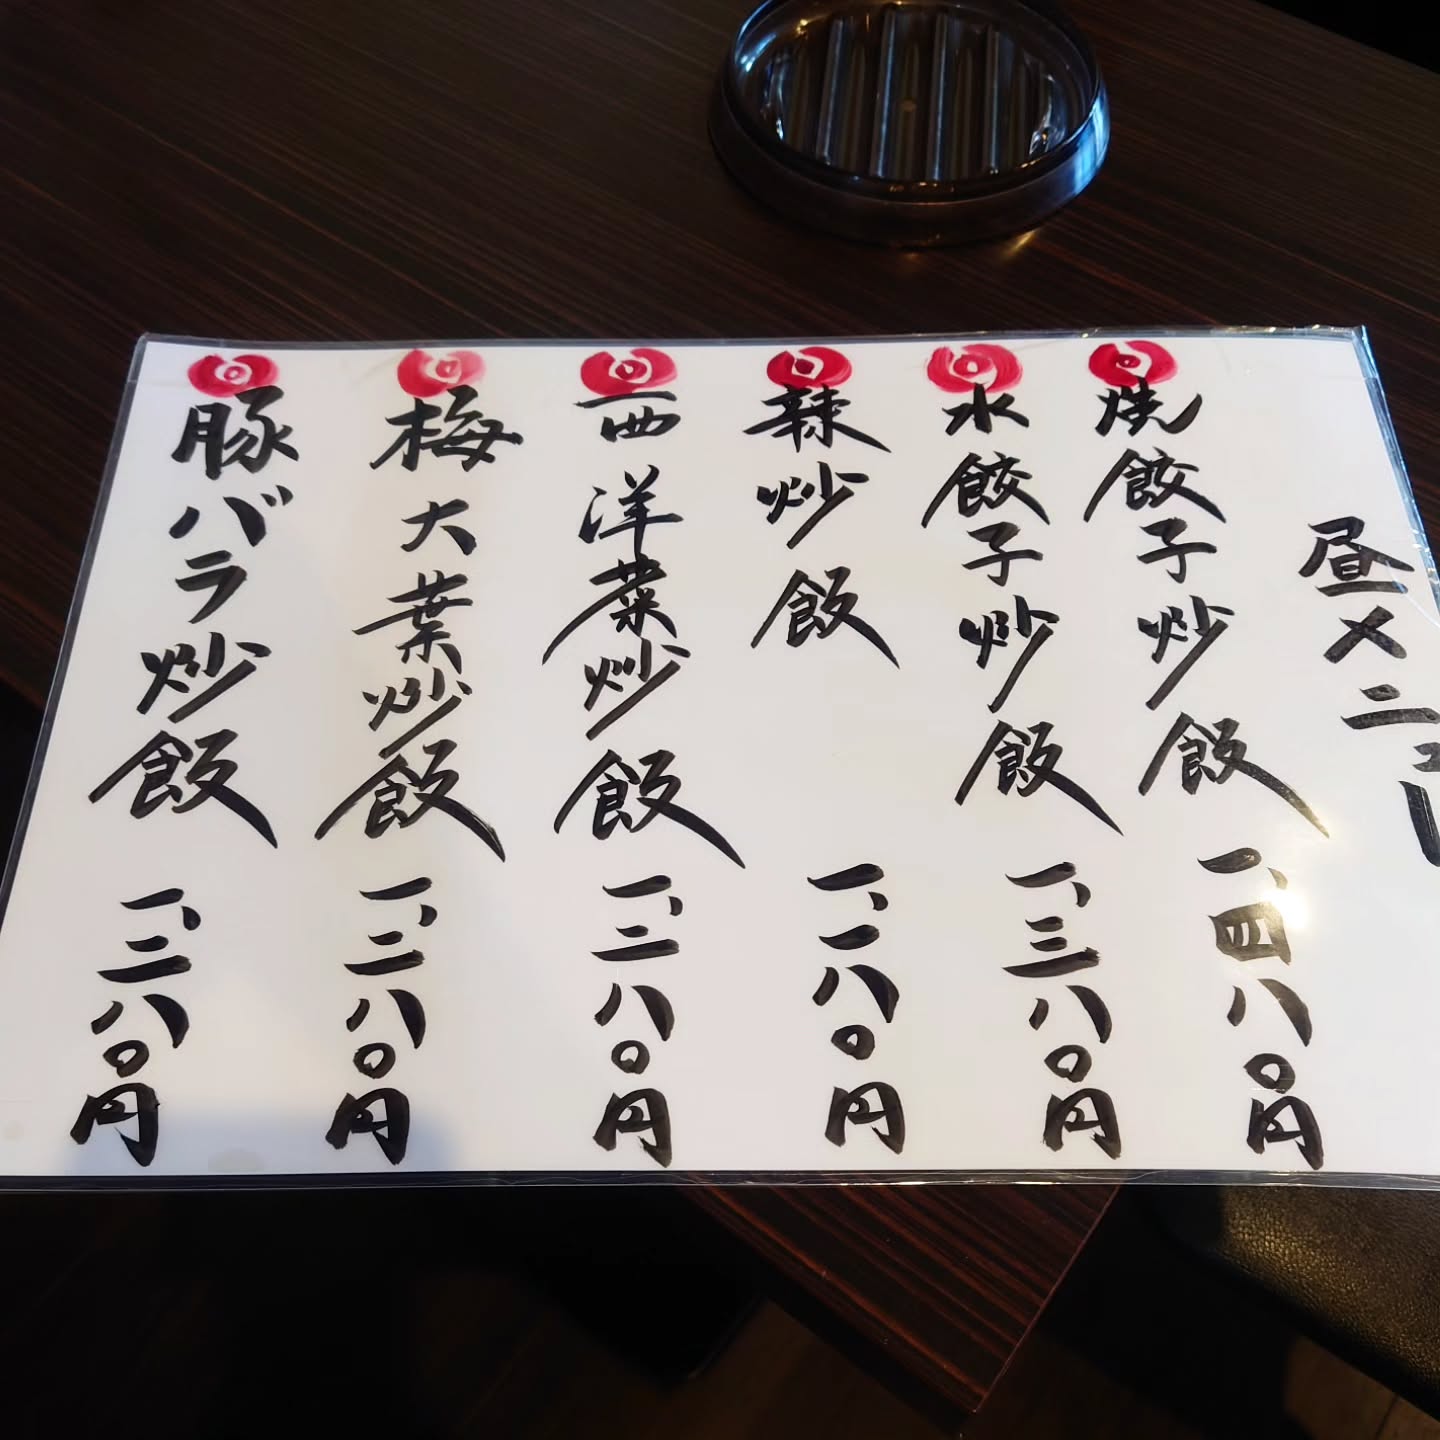 昼メニュー
焼餃子炒飯 一、四八〇円
水餃子炒飯 一、三八〇円
辣炒飯 一、一八〇円
西洋菜炒飯 一、二八〇円
梅大葉炒飯 一、二八〇円
豚バラ炒飯 一、二八〇円